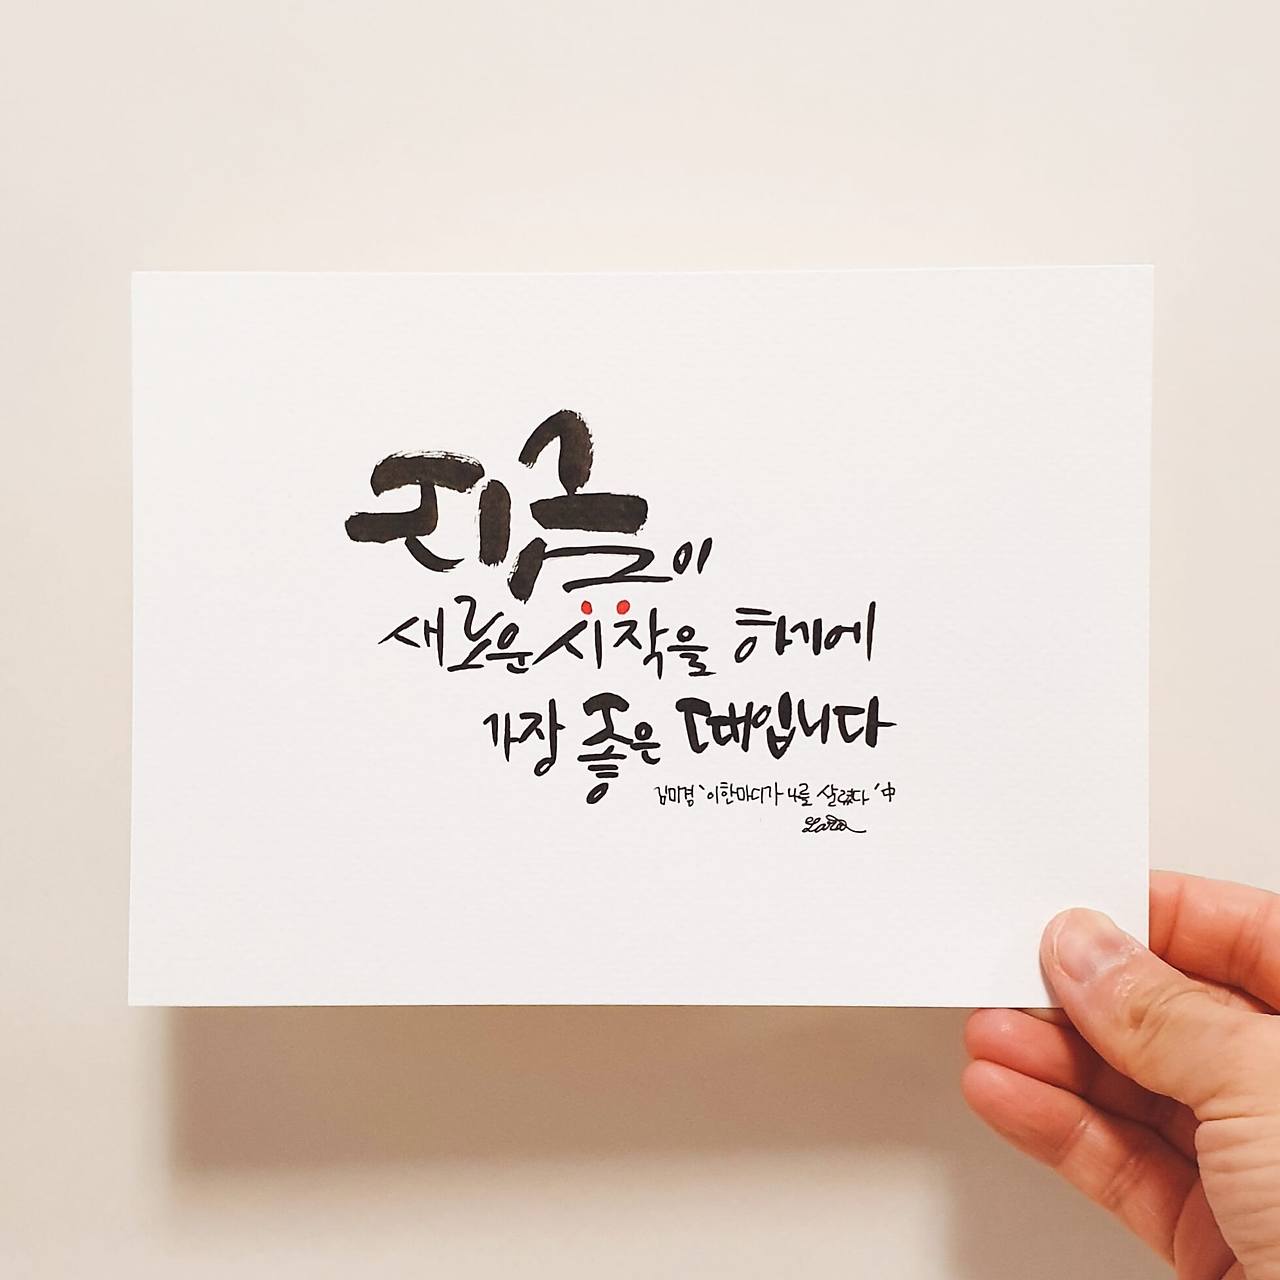 지금이
새로운 시작을 하기에
가장 좋은 때입니다
김미경 '이한마디가 나를 살렸다' 中
Lara